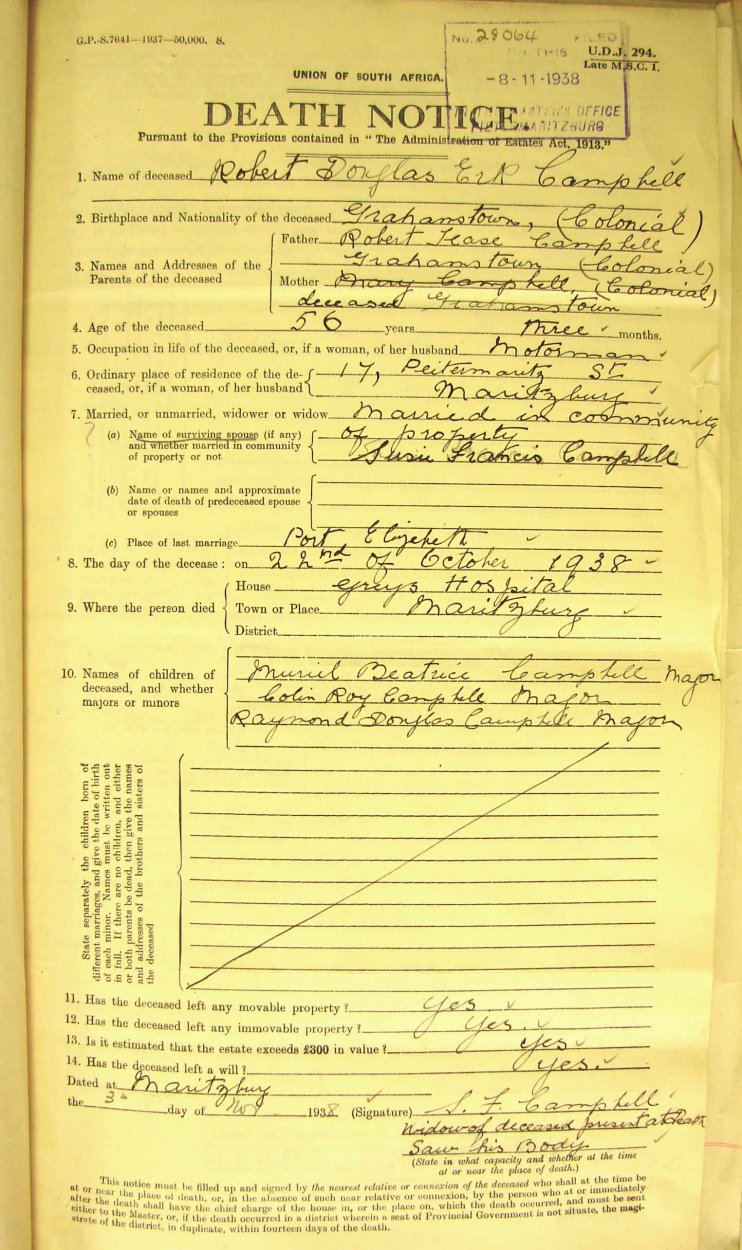 G.P.-S.7641—1937—50,000. S.
No. 28064 FILED
U.D.J. 294.
Late M.S.C. 1.
UNION OF SOUTH AFRICA.
-8-11-1938
MASTER'S OFFICE
PIETERMARITZBURG
DEATH NOTICE.
Pursuant to the Provisions contained in " The Administration of Estates Act, 1913."
1. Name of deceased Robert Douglas Campbell
2. Birthplace and Nationality of the deceased Grahamstown, (Colonial)
3. Names and Addresses of the Parents of the deceased
Father Robert Campbell
Grahamstown (Colonial)
Mother Mary Campbell, (Colonial)
deceased Grahamstown
4. Age of the deceased 56 years three months.
5. Occupation in life of the deceased, or, if a woman, of her husband Motorman
6. Ordinary place of residence of the deceased, or, if a woman, of her husband 17, Peitermaritz St.
Maritzburg
7. Married, or unmarried, widower or widow Married in community
?
(a) Name of surviving spouse (if any) and whether married in community of property or not
of property
Susie Francis Campbell
(b) Name or names and approximate date of death of predeceased spouse or spouses
(c) Place of last marriage Port Elizabeth
8. The day of the decease: on 22nd of October 1938
9. Where the person died
House Greys Hospital
Town or Place Maritzburg
District
10. Names of children of deceased, and whether majors or minors
Muriel Beatrice Campbell Major
Colin Roy Campbell Major
Raymond Douglas Campbell Major
State separately the children born of
different marriages, and give the date of birth
of each minor. Names must be written out
in full. If there are no children, and either
or both parents be dead, then give the names
and addresses of the brothers and sisters of
the deceased
11. Has the deceased left any movable property? yes
12. Has the deceased left any immovable property? yes.
13. Is it estimated that the estate exceeds £300 in value? yes
14. Has the deceased left a will? yes.
Dated at Maritzburg
the 3 day of Nov 1938 (Signature) S. F. Campbell
Widow of deceased present at Death
Saw his Body
(State in what capacity and whether at the time
at or near the place of death.)
This notice must be filled up and signed by the nearest relative or connexion of the deceased who shall at the time be
at or near the place of death, or, in the absence of such near relative or connexion, by the person who at or immediately
after the death shall have the chief charge of the house in, or the place on, which the death occurred, and must be sent
either to the Master, or, if the death occurred in a district wherein a seat of Provincial Government is not situate, the magi-
strate of the district, in duplicate, within fourteen days of the death.